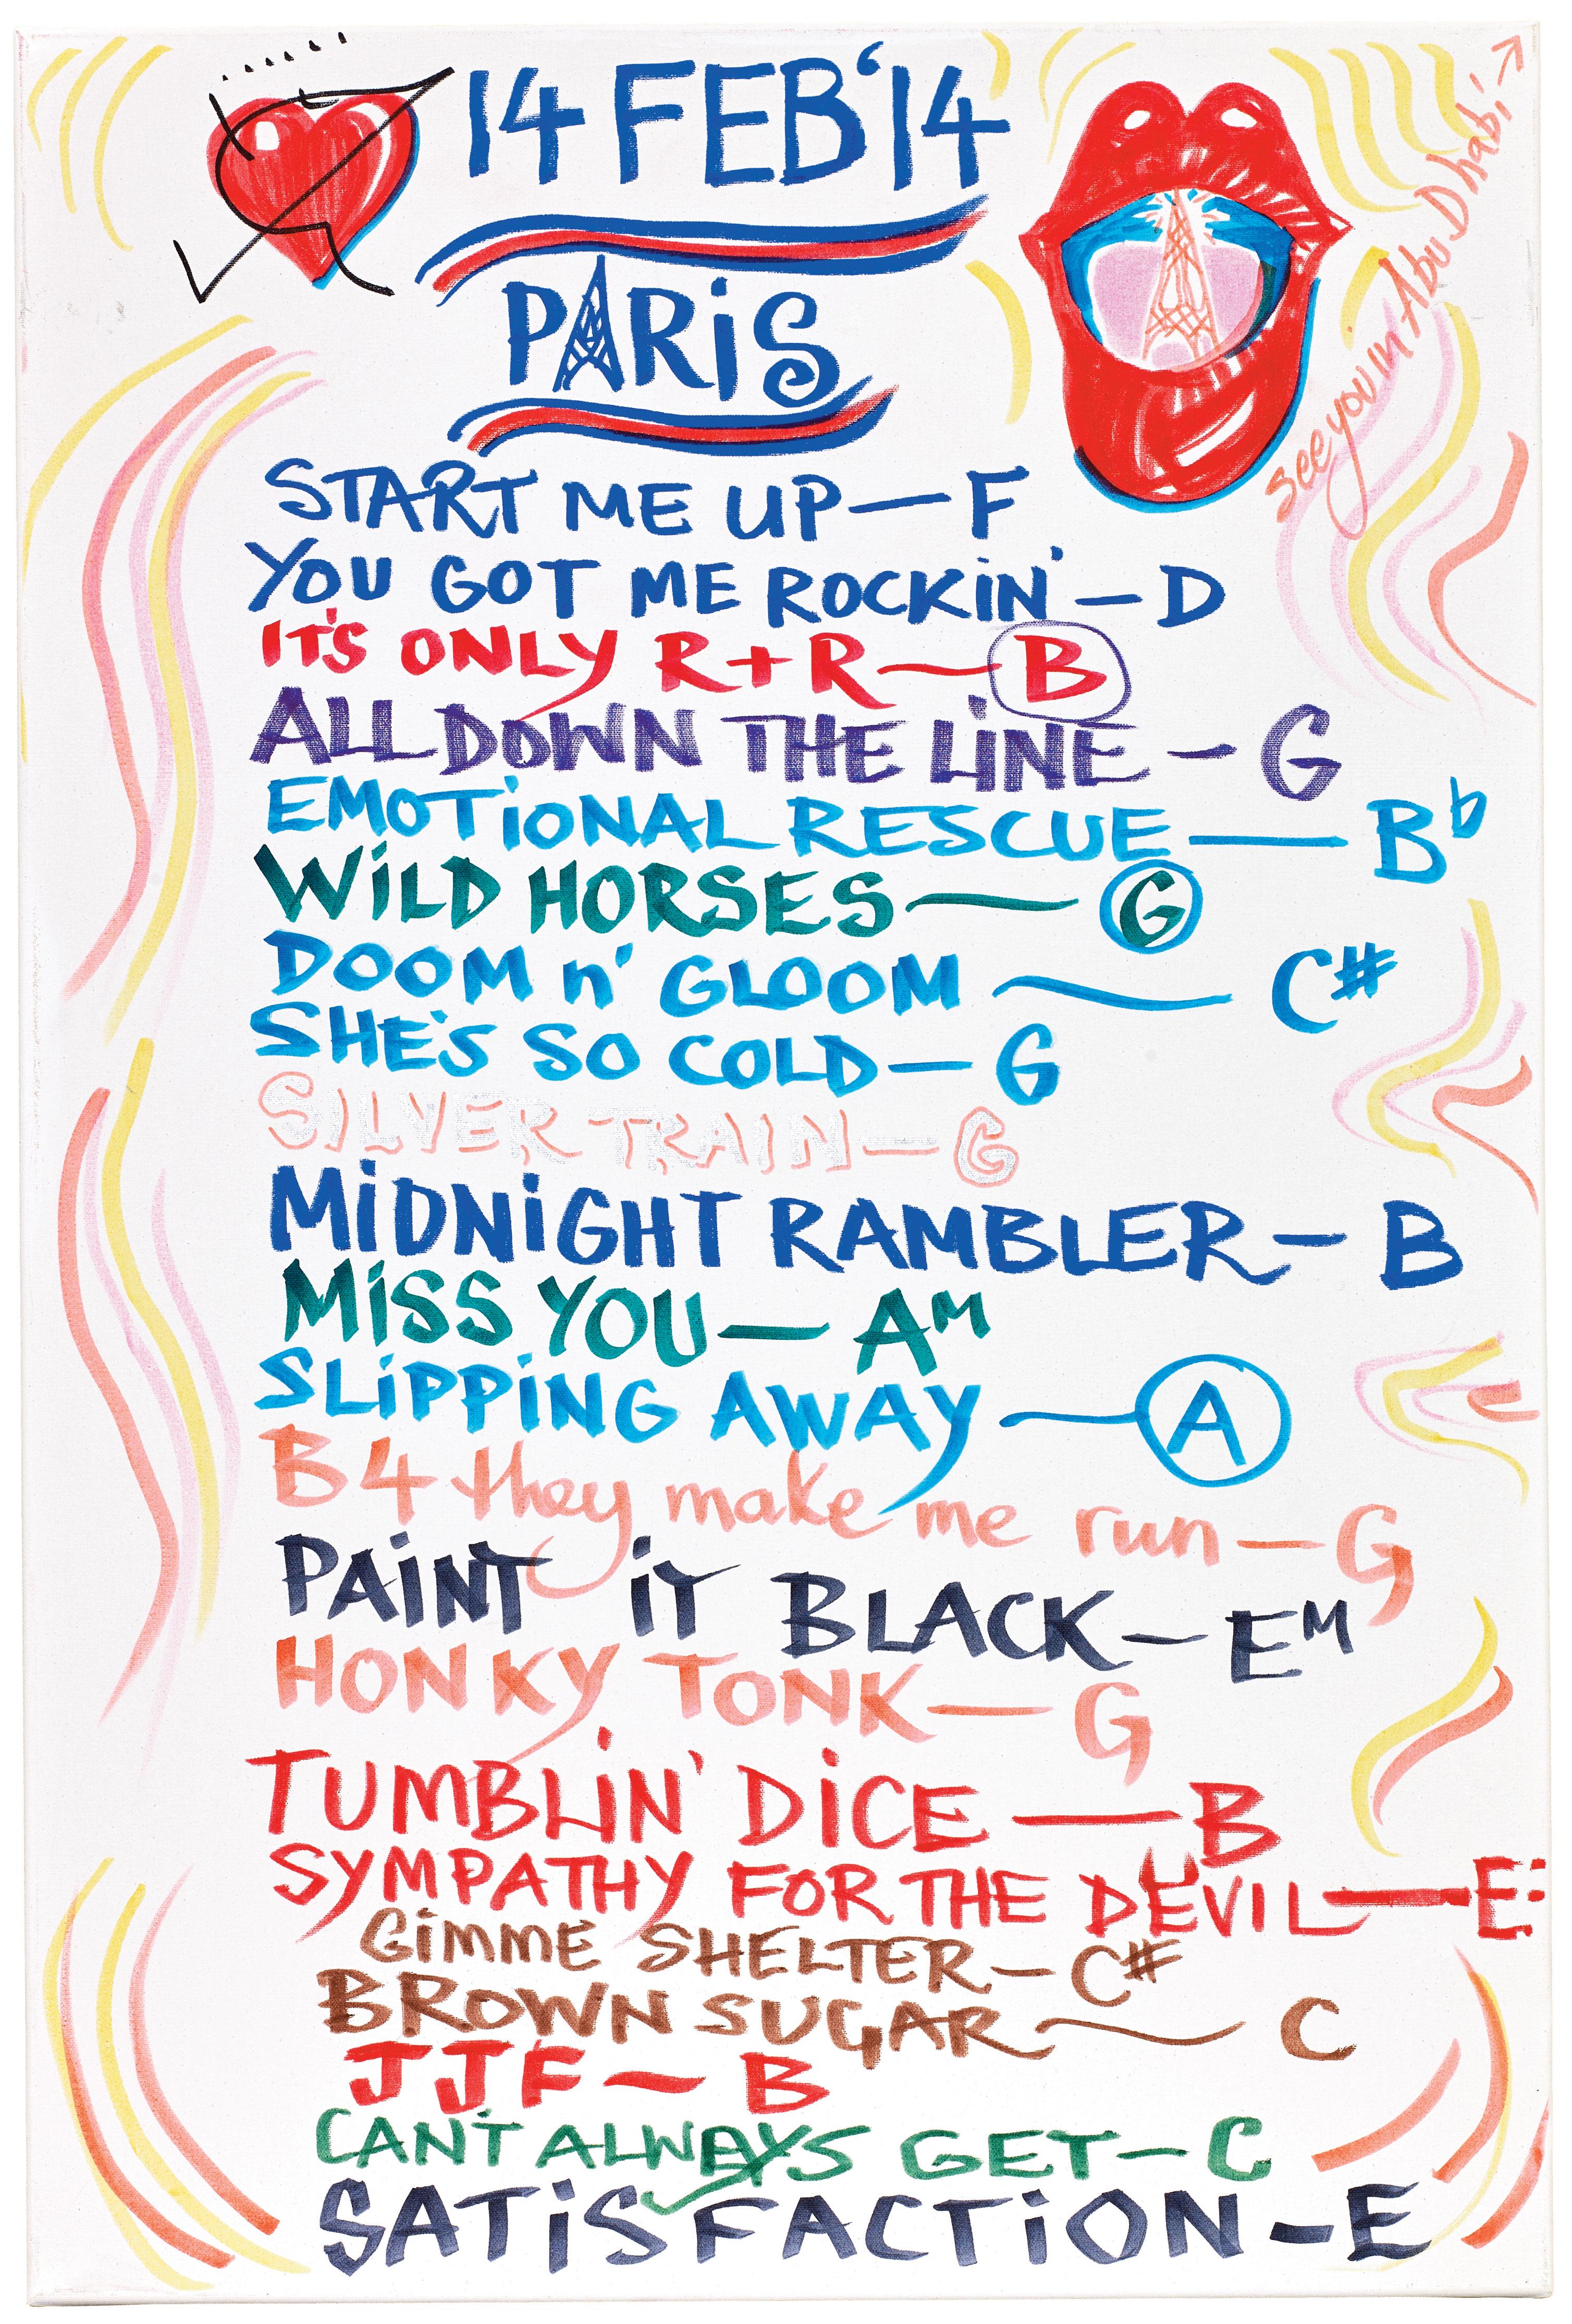 14 FEB '14
PARiS
see you in Abu Dhabi →
START ME UP — F
YOU GOT ME ROCKiN' — D
IT'S ONLY R+R — B
ALL DOWN THE LiNE — G
EMOTiONAL RESCUE — B♭
WiLD HORSES — G
DOOM n' GLOOM — C#
SHE'S SO COLD — G
SILVER TRAIN — G
MiDNiGHT RAMBLER — B
MiSS YOU — AM
SLiPPiNG AWAY — A
B4 they make me run — G
PAiNT iT BLACK — EM
HONKY TONK — G
TUMBLiN' DiCE — B
SYMPATHY FOR THE DEVIL — E:
GiMME SHELTER — C#
BROWN SUGAR — C
JJF — B
CAN'T ALWAYS GET — C
SATiSFACTiON — E